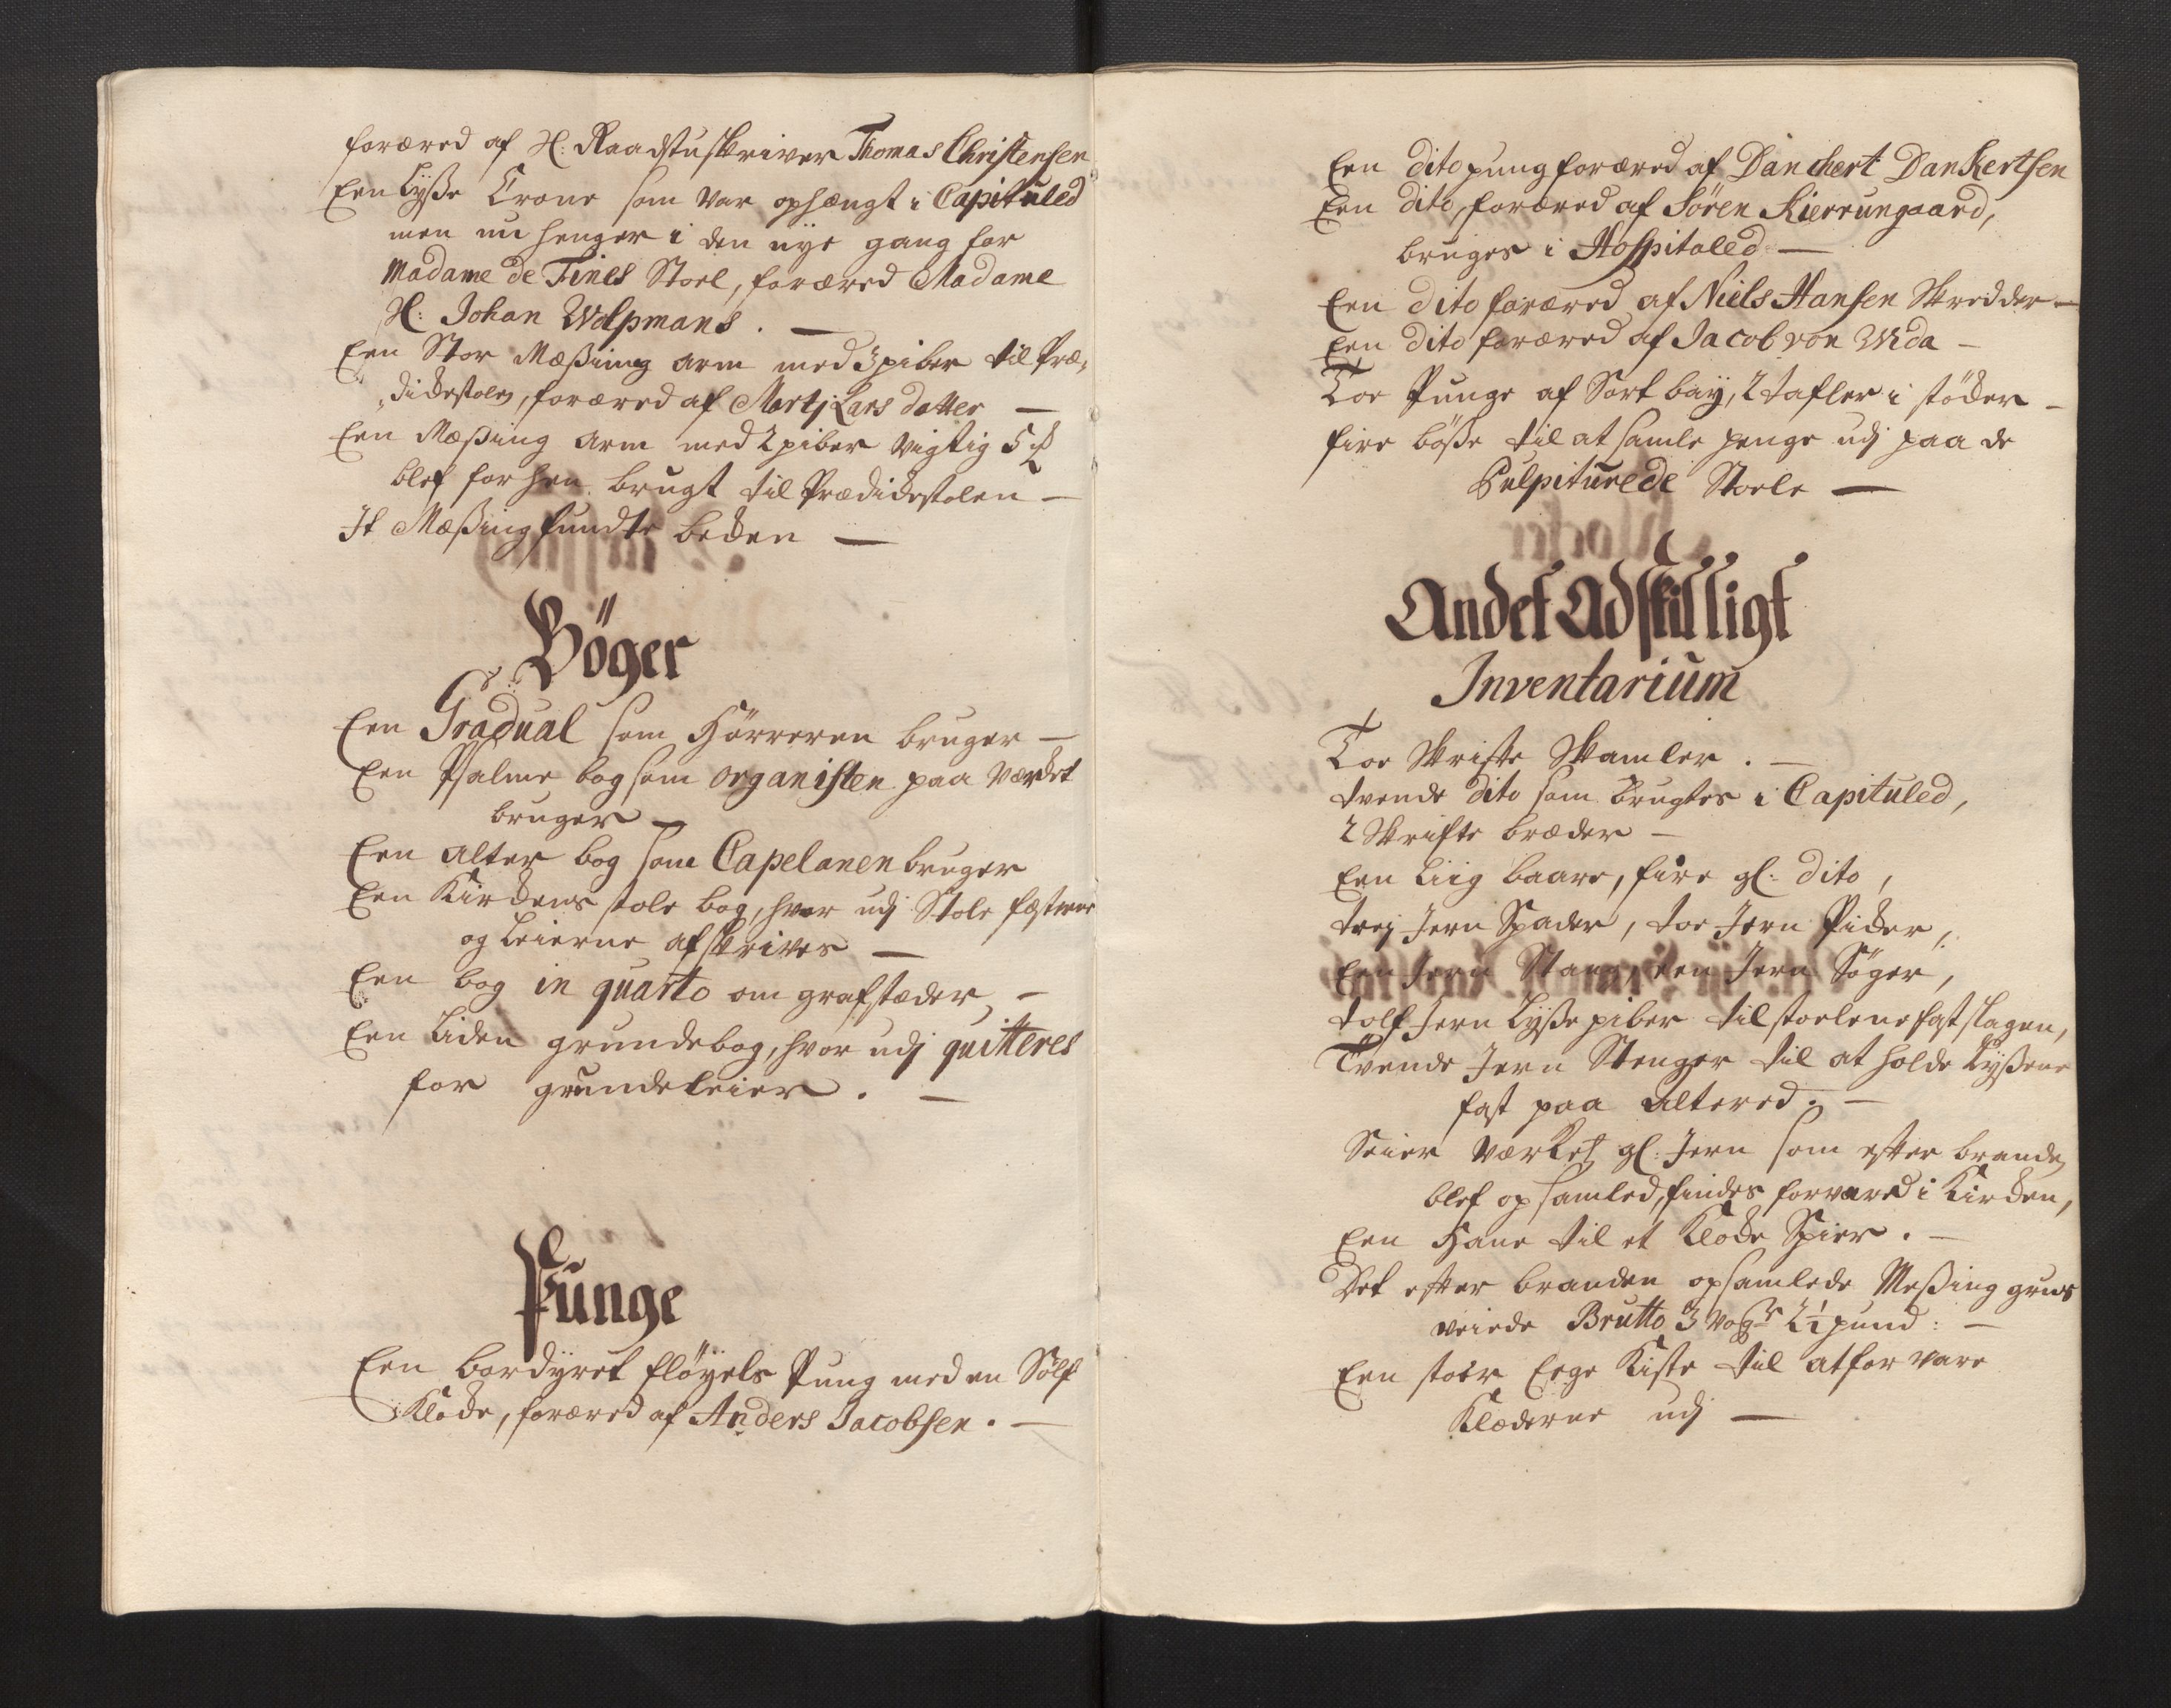 foræred af H: Raadstuskriver Thomas Christensen
Een Lysse Crone som var ophængt i Capituled
men nu henger i den nye gang for
Madame de Fines Stoel, foræred Madame
H: Johan Wolpmans. —
Een Stor Messing arm med 3 piber til Præ„
„dickestolen, foræred af Martj Lars datter —
Een Messing arm med 2 piber vigtig 5 ℔
blef forhen brugt til Prædickestolen —
It Messing fundte becken —
Böger
Een Gradual som Hörreren bruger —
Een Psalme bog som organisten paa værcket
bruger —
Een alter bog som Capelanen bruger
Een Kirckens stole bog, hvor udj Stole fæsterne
og Leierne afskrives —
Een bog in quarto om grafstæder, —
Een Liden grundebog, hvor udj quitteres
for grundeleier. —
Punge
Een bordyret fløyels Pung med en Sölf
Klocke, foræred af Anders Jacobsen. —
Een dito pung foræred af Danchert DanKertsen
Een dito, foræred af Sören Kierrungaard,
bruges i Hospitaled —
Een dito foræred af Niels Hansen Skredder —
Een dito foræred af Jacob von Wida —
Toe Punge af Sort bay, 2 tafler i stöcker —
fire bösse til at samle penge udj paa de
Pulpiturede Stoele —
Andet Adskilligt
Inventarium
Toe Skrifte Skamler. —
tvende dito som brugtes i Capituled,
2 Skrifte bræder —
Een Liig baare, fire gl: dito,
trej Jern Spader, toe Jern Picker,
Een Jern Stang, een Jern Söger,
tolf Jern Lysse piber til stoelene fastslagen,
Tvende Jern Stenger til at holde Lyssene
fast paa altered. —
Seier værket gl: Jern som efter branden
blef opsamled, findes forvared i Kircken,
Een Hane til et Klocke Spier. —
Det efter branden opsamlede Messing gruus
veiede Brutto 3 vogr 2½ pund: —
Een stoer Eege Kiste til at forvare
Klæderne udj —